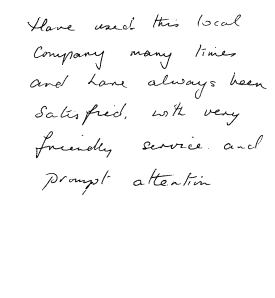 Have used this local
Company many times
and have always been
Satisfied, with very
friendly service. and
prompt attention